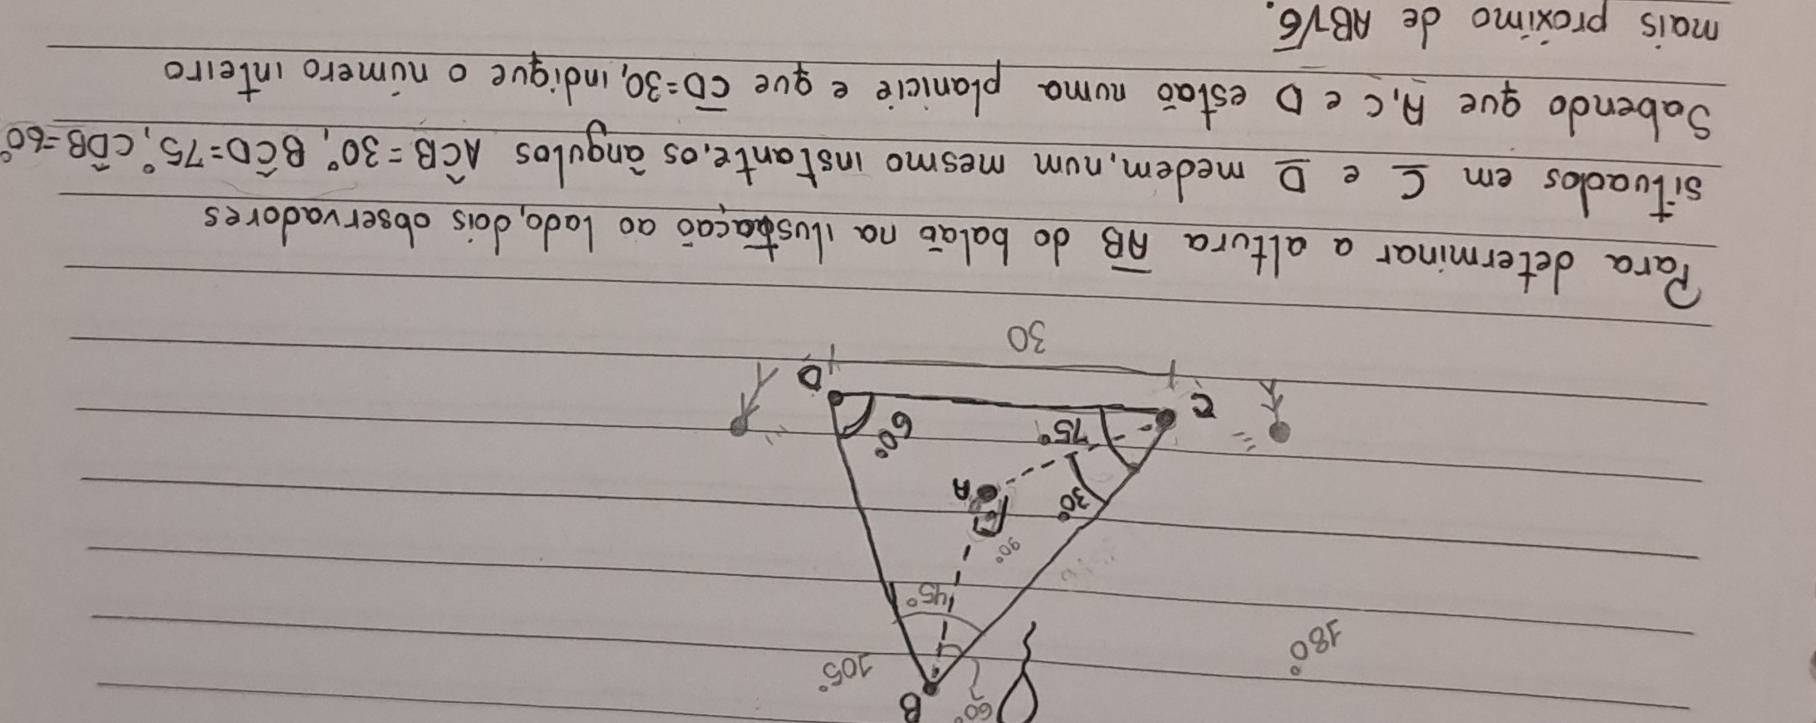 B
60°
105°
180°
45°
90°
A
30°
75°
60°
C
D
30
Para determinar a altura AB do balaõ na ilustraçaõ ao lado, dois observadores
situados em C e D medem, num mesmo instante, os ângulos AĈB = 30°, BĈD = 75°, CD̂B = 60°
Sabendo que A, C e D estaõ numa planicie e que CD = 30, indique o número inteiro
mais próximo de AB√6.